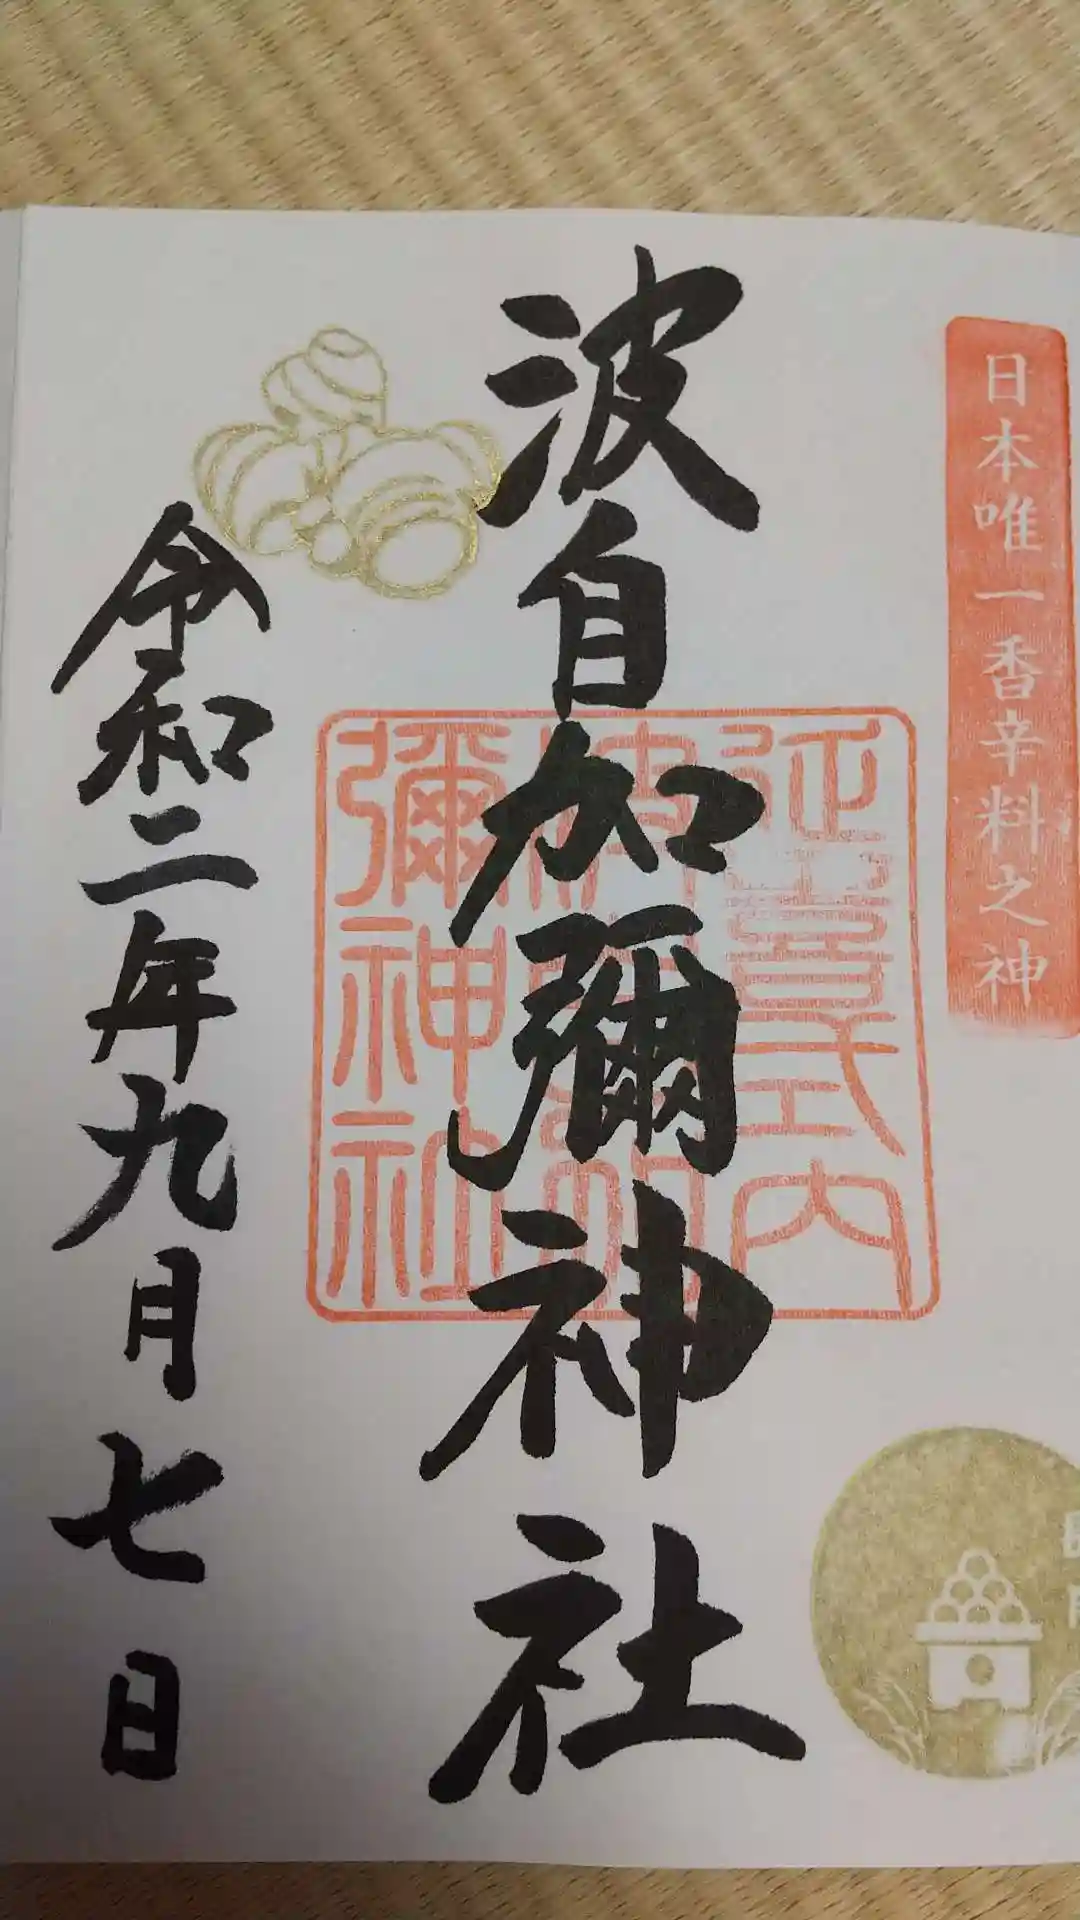 日本唯一香辛料之神
波自加彌神社
延喜式内
波自加
彌神社
令和二年九月七日